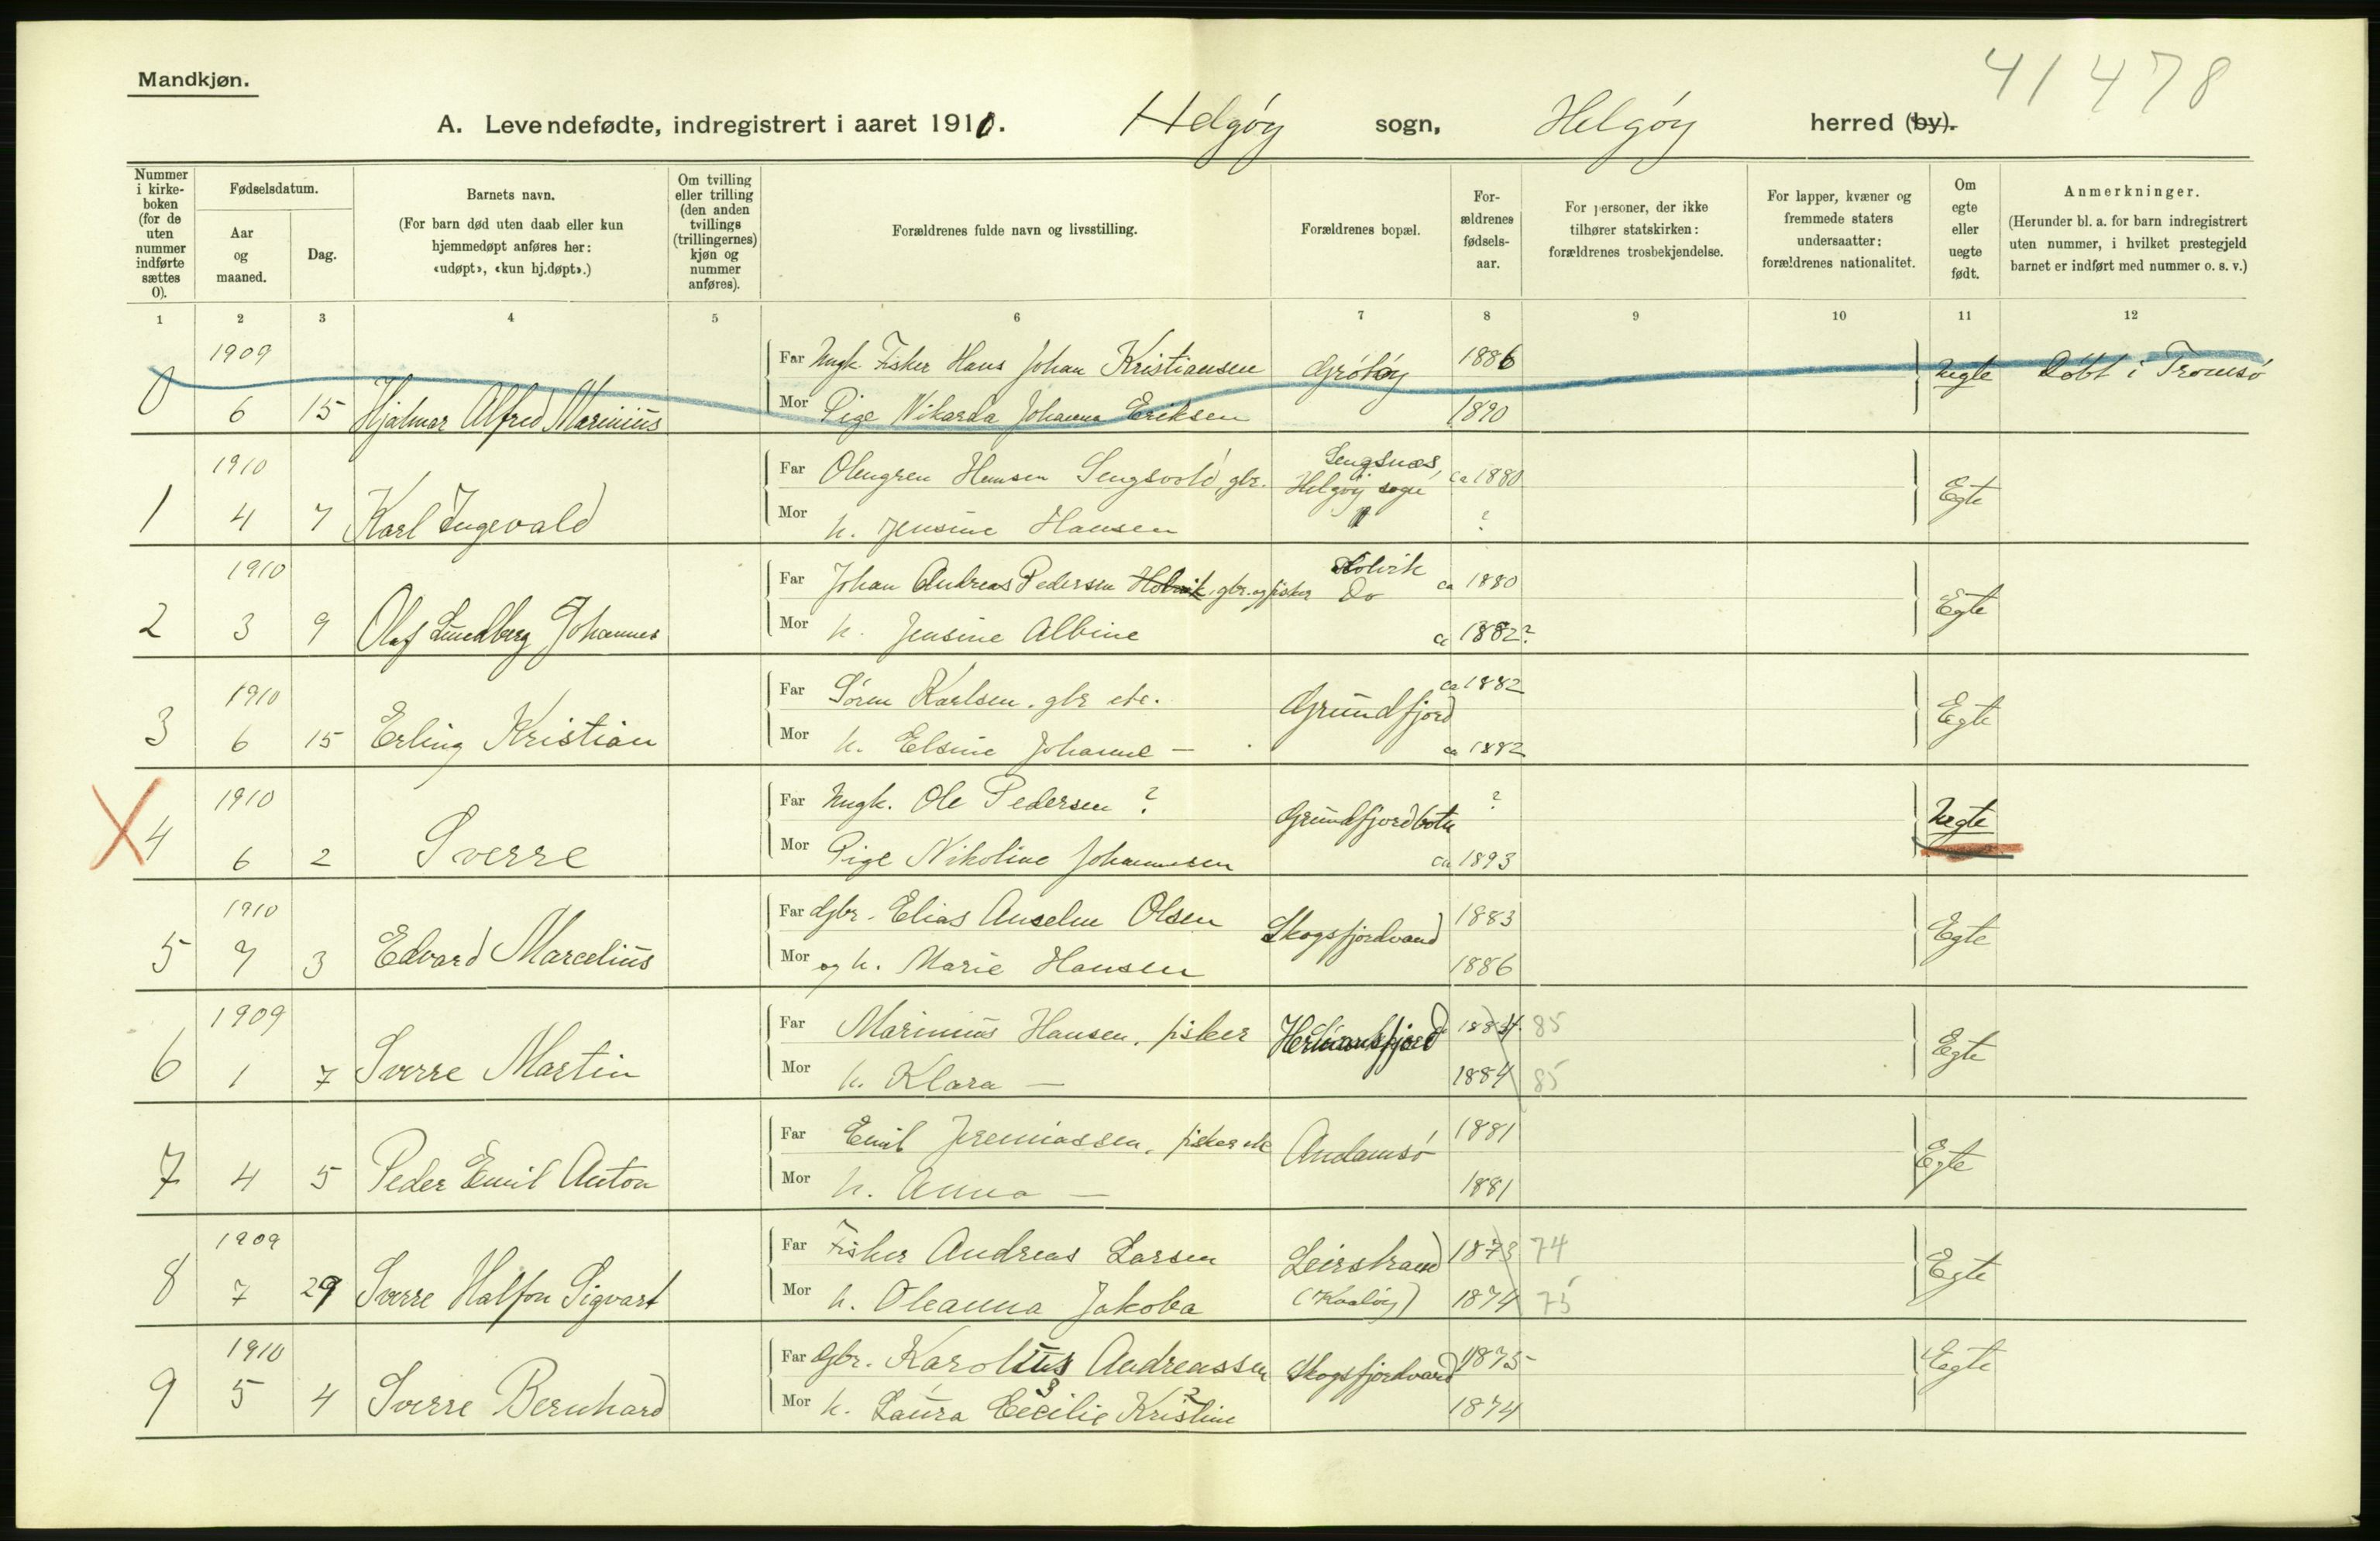 Mandkjøn.
41478
A. Levendefødte, indregistrert i aaret 1910. Helgøy sogn, Helgøy herred (by).
Nummer i kirke-boken (for de uten nummer indførte sættes 0).
Fødselsdatum.
Aar og maaned.
Dag.
Barnets navn.
(For barn død uten daab eller kun hjemmedøpt anføres her: «udøpt», «kun hj.døpt».)
Om tvilling eller trilling (den anden tvillings (trillingernes) kjøn og nummer anføres).
Forældrenes fulde navn og livsstilling.
Forældrenes bopæl.
For-ældrenes fødsels-aar.
For personer, der ikke tilhører statskirken: forældrenes trosbekjendelse.
For lapper, kvæner og fremmede staters undersaatter: forældrenes nationalitet.
Om egte eller uegte født.
Anmerkninger.
(Herunder bl. a. for barn indregistrert uten nummer, i hvilket prestegjeld barnet er indført med nummer o. s. v.)
1 2 3 4 5 6 7 8 9 10 11 12
1909 Far Ungk. Fisker Hans Johan Kristiansen Grötöy 1886 Uegte Döbt i Tromsö
0 6 15 Hjalmar Alfred Marinius Mor Pige Nikarda Johanna Eriksen 1890
1910 Far Olengren Hansen Sengsvold, gbr. Sengsnæs, Helgöy sogn ca 1880 Egte
1 4 7 Karl Ingevald Mor h. Jensine Hansen " ?
1910 Far Johan Andreas Pedersen Holvik, gbr. og fisker Holvik Do ca 1880 Egte
2 3 9 Olaf Lundberg Johannes Mor h. Jensine Albine ca 1882?
1910 Far Sören Karlsen, gbr etc. Grundfjord ca 1882 Egte
3 6 15 Erling Kristian Mor h. Elsine Johanne — ca 1882
1910 Far Ungk. Ole Pedersen ? Grundfjordbotn ? Uegte
4 6 2 Sverre Mor Pige Nikoline Johannesen ca 1893
1910 Far Gbr. Elias Anselm Olsen Skogsfjordvand 1883 Egte
5 7 3 Edvard Marcelius Mor og h. Marie Hansen 1886
1909 Far Marinius Hansen, fisker 1884 85 Egte
6 1 7 Sverre Martin Mor h. Klara — 1884 85
Far Emil Jeremiassen, fisker etc Andamsö 1881 Egte
7 4 5 Peder Emil Anton Mor h. Anna — 1881
1909 Far Fisker Andreas Larsen Leirstrand 1873 74 Egte
8 7 29 Sverre Halfon Sigvart Mor h. Oleanna Jakoba (Kvalöy) 1874 75
1910 Far Gbr. Karolius Andreassen Skogsfjordvand 1875 Egte
9 5 4 Sverre Bernhard Mor h. Laura Cecilie Kristine 1874